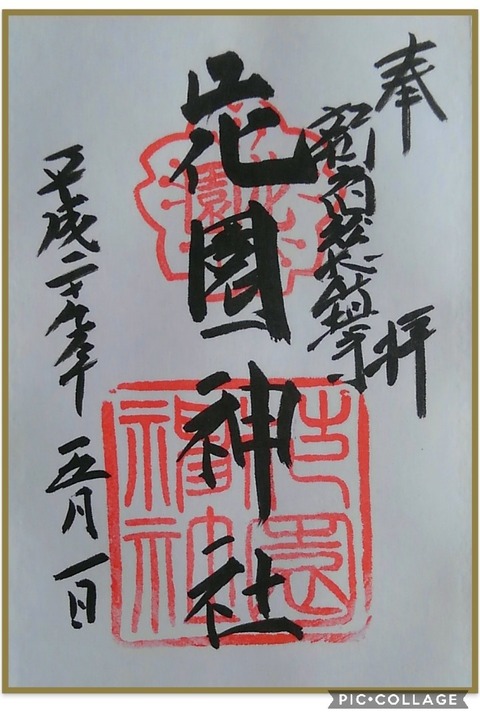 奉拝
新宿総鎮守
花園神社
平成二十九年 五月一日
花園
花園神社
PIC•COLLAGE